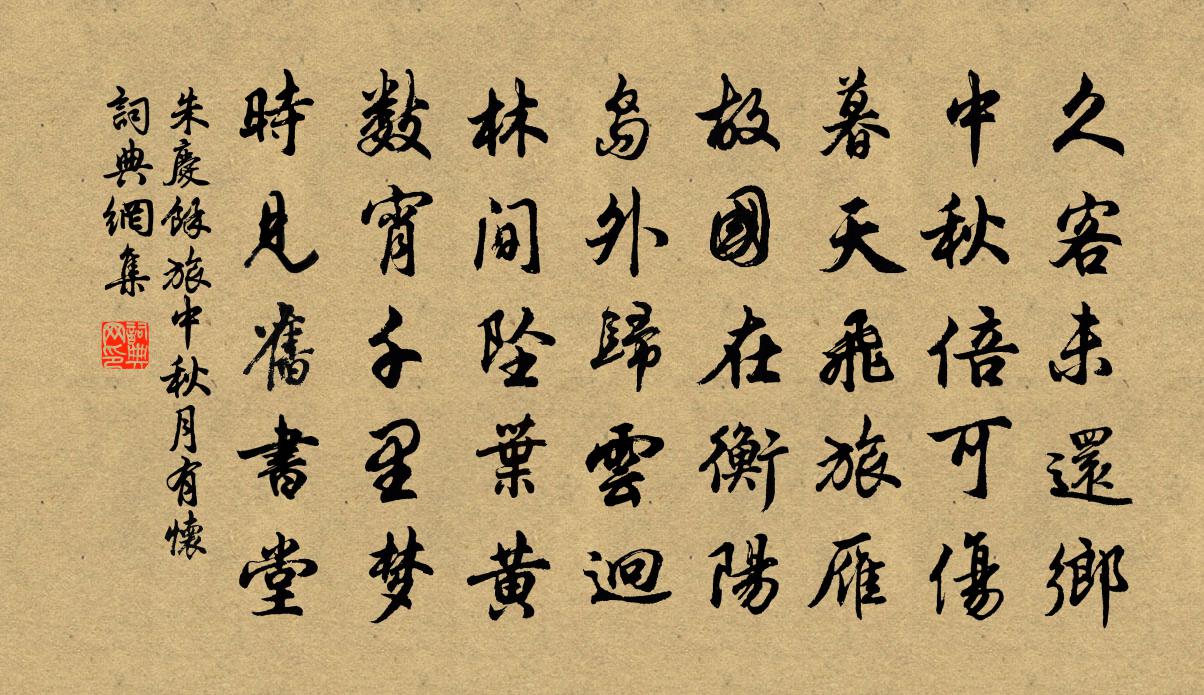 久客未還鄉
中秋倍可傷
暮天飛旅雁
故國在衡陽
島外歸雲迥
林間墜葉黃
數宵千里梦
時見舊書堂
朱慶餘旅中秋月有懷
詞典網集
詞典网印